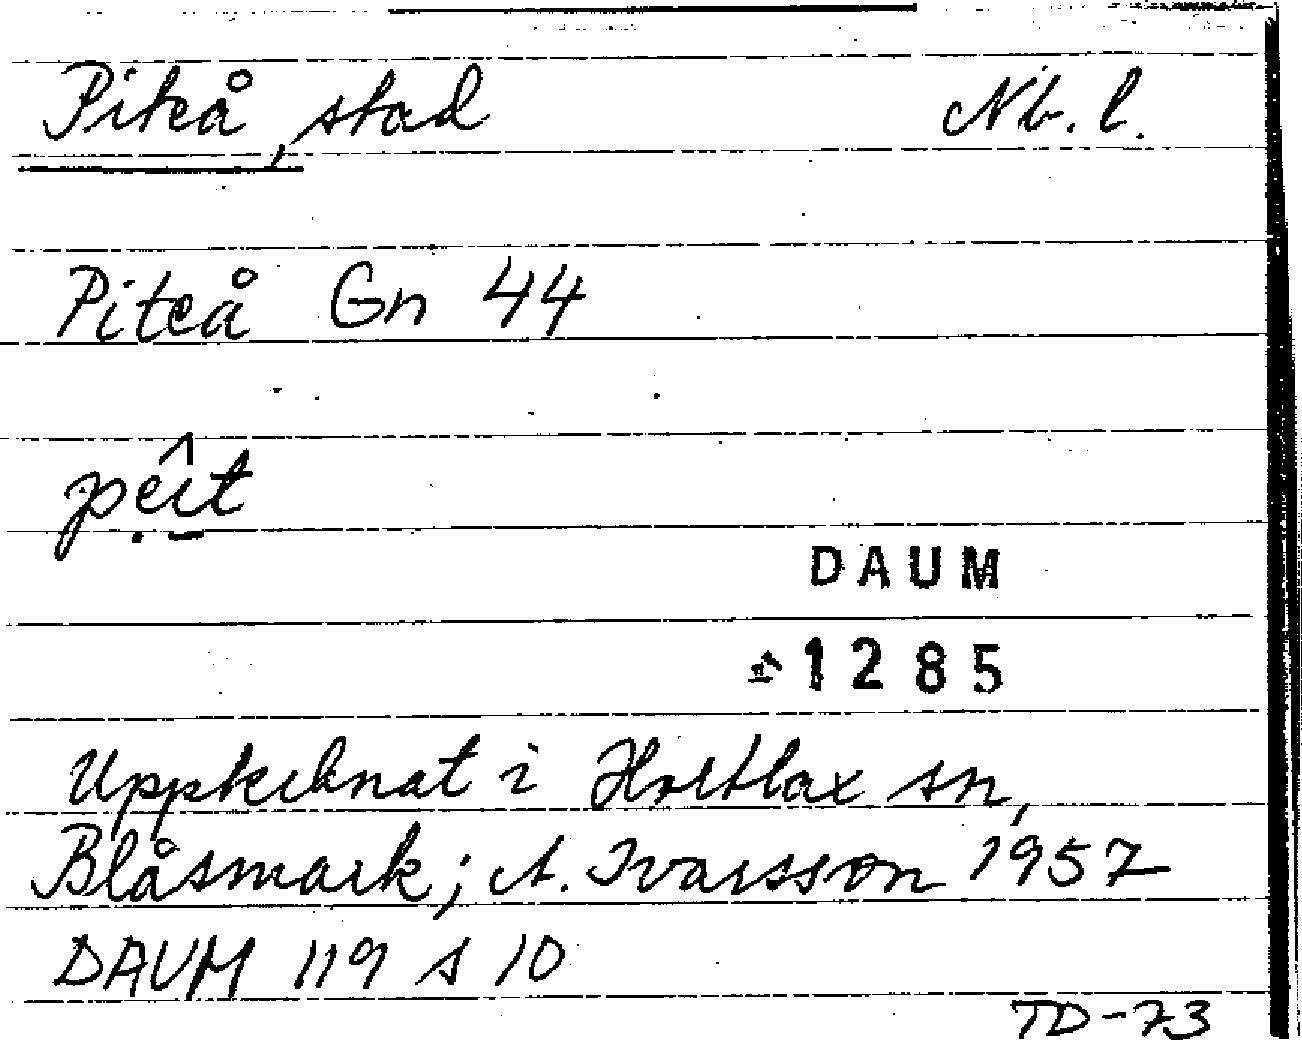 Piteå, stad Nb. l.
Piteå Gn 44
pẹî̱t
DAUM
1285
Upptecknat i Hortlax sn,
Blåsmark; A. Ivarsson 1957
DAUM 119 s 10
TD-73